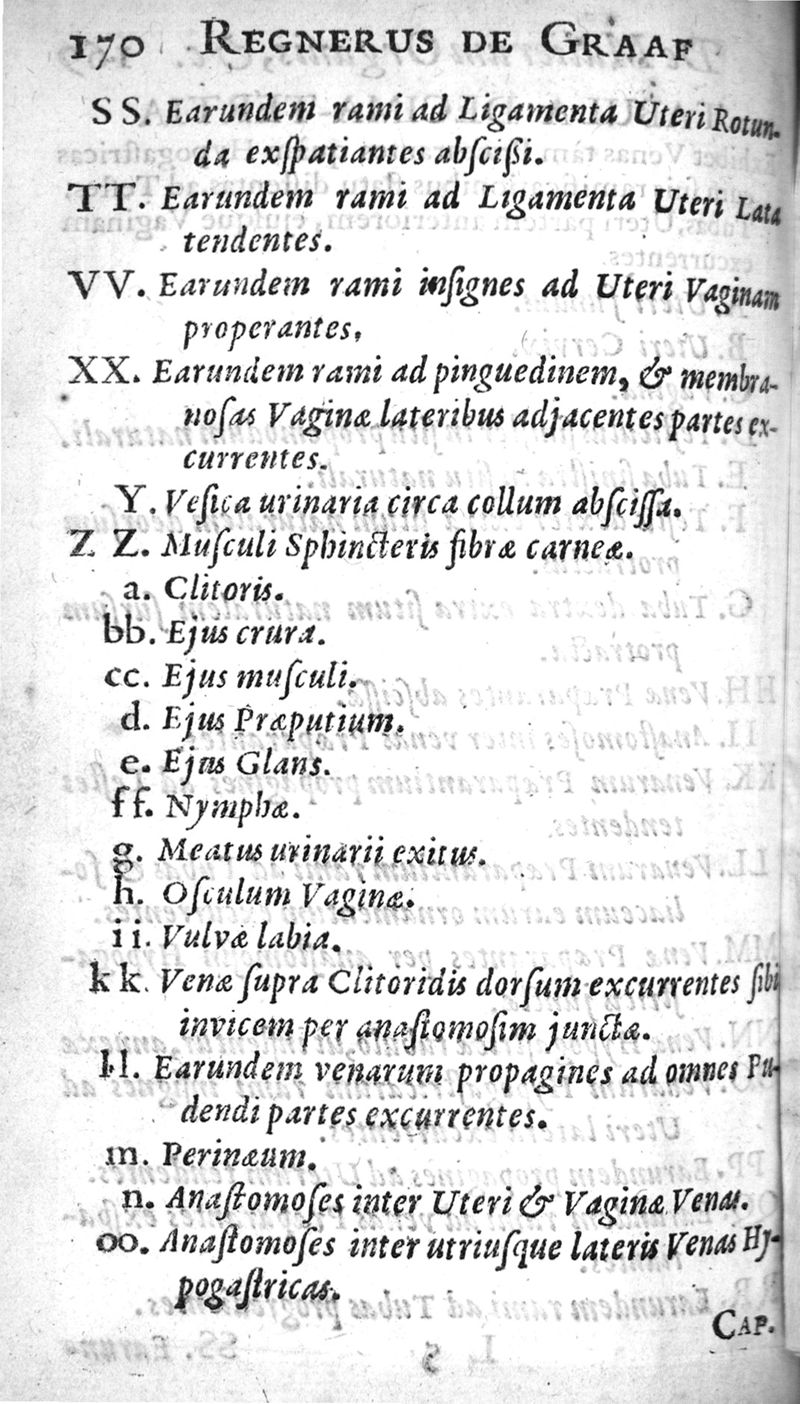 170 REGNERUS DE GRAAF
SS. Earundem rami ad Ligamenta Uteri Rotun-
da exſpatiantes abſciſſi.
TT. Earundem rami ad Ligamenta Uteri Lata
tendentes.
VV. Earundem rami inſignes ad Uteri Vaginam
properantes.
XX. Earundem rami ad pinguedinem, & membra-
noſas Vaginæ lateribus adjacentes partes ex-
currentes.
Y. Veſica urinaria circa collum abſciſſa.
Z Z. Muſculi Sphincteris fibræ carneæ.
a. Clitoris.
bb. Ejus crura.
cc. Ejus muſculi.
d. Ejus Præputium.
e. Ejus Glans.
ff. Nymphæ.
g. Meatus urinarii exitus.
h. Oſculum Vaginæ.
ii. Vulvæ labia.
kk. Venæ ſupra Clitoridis dorſum excurrentes ſibi
invicem per anaſtomoſim junctæ.
ll. Earundem venarum propagines ad omnes Pu-
dendi partes excurrentes.
m. Perinæum.
n. Anaſtomoſes inter Uteri & Vaginæ Venas.
oo. Anaſtomoſes inter utriuſque lateris Venas Hy-
pogaſtricas.
CAP.